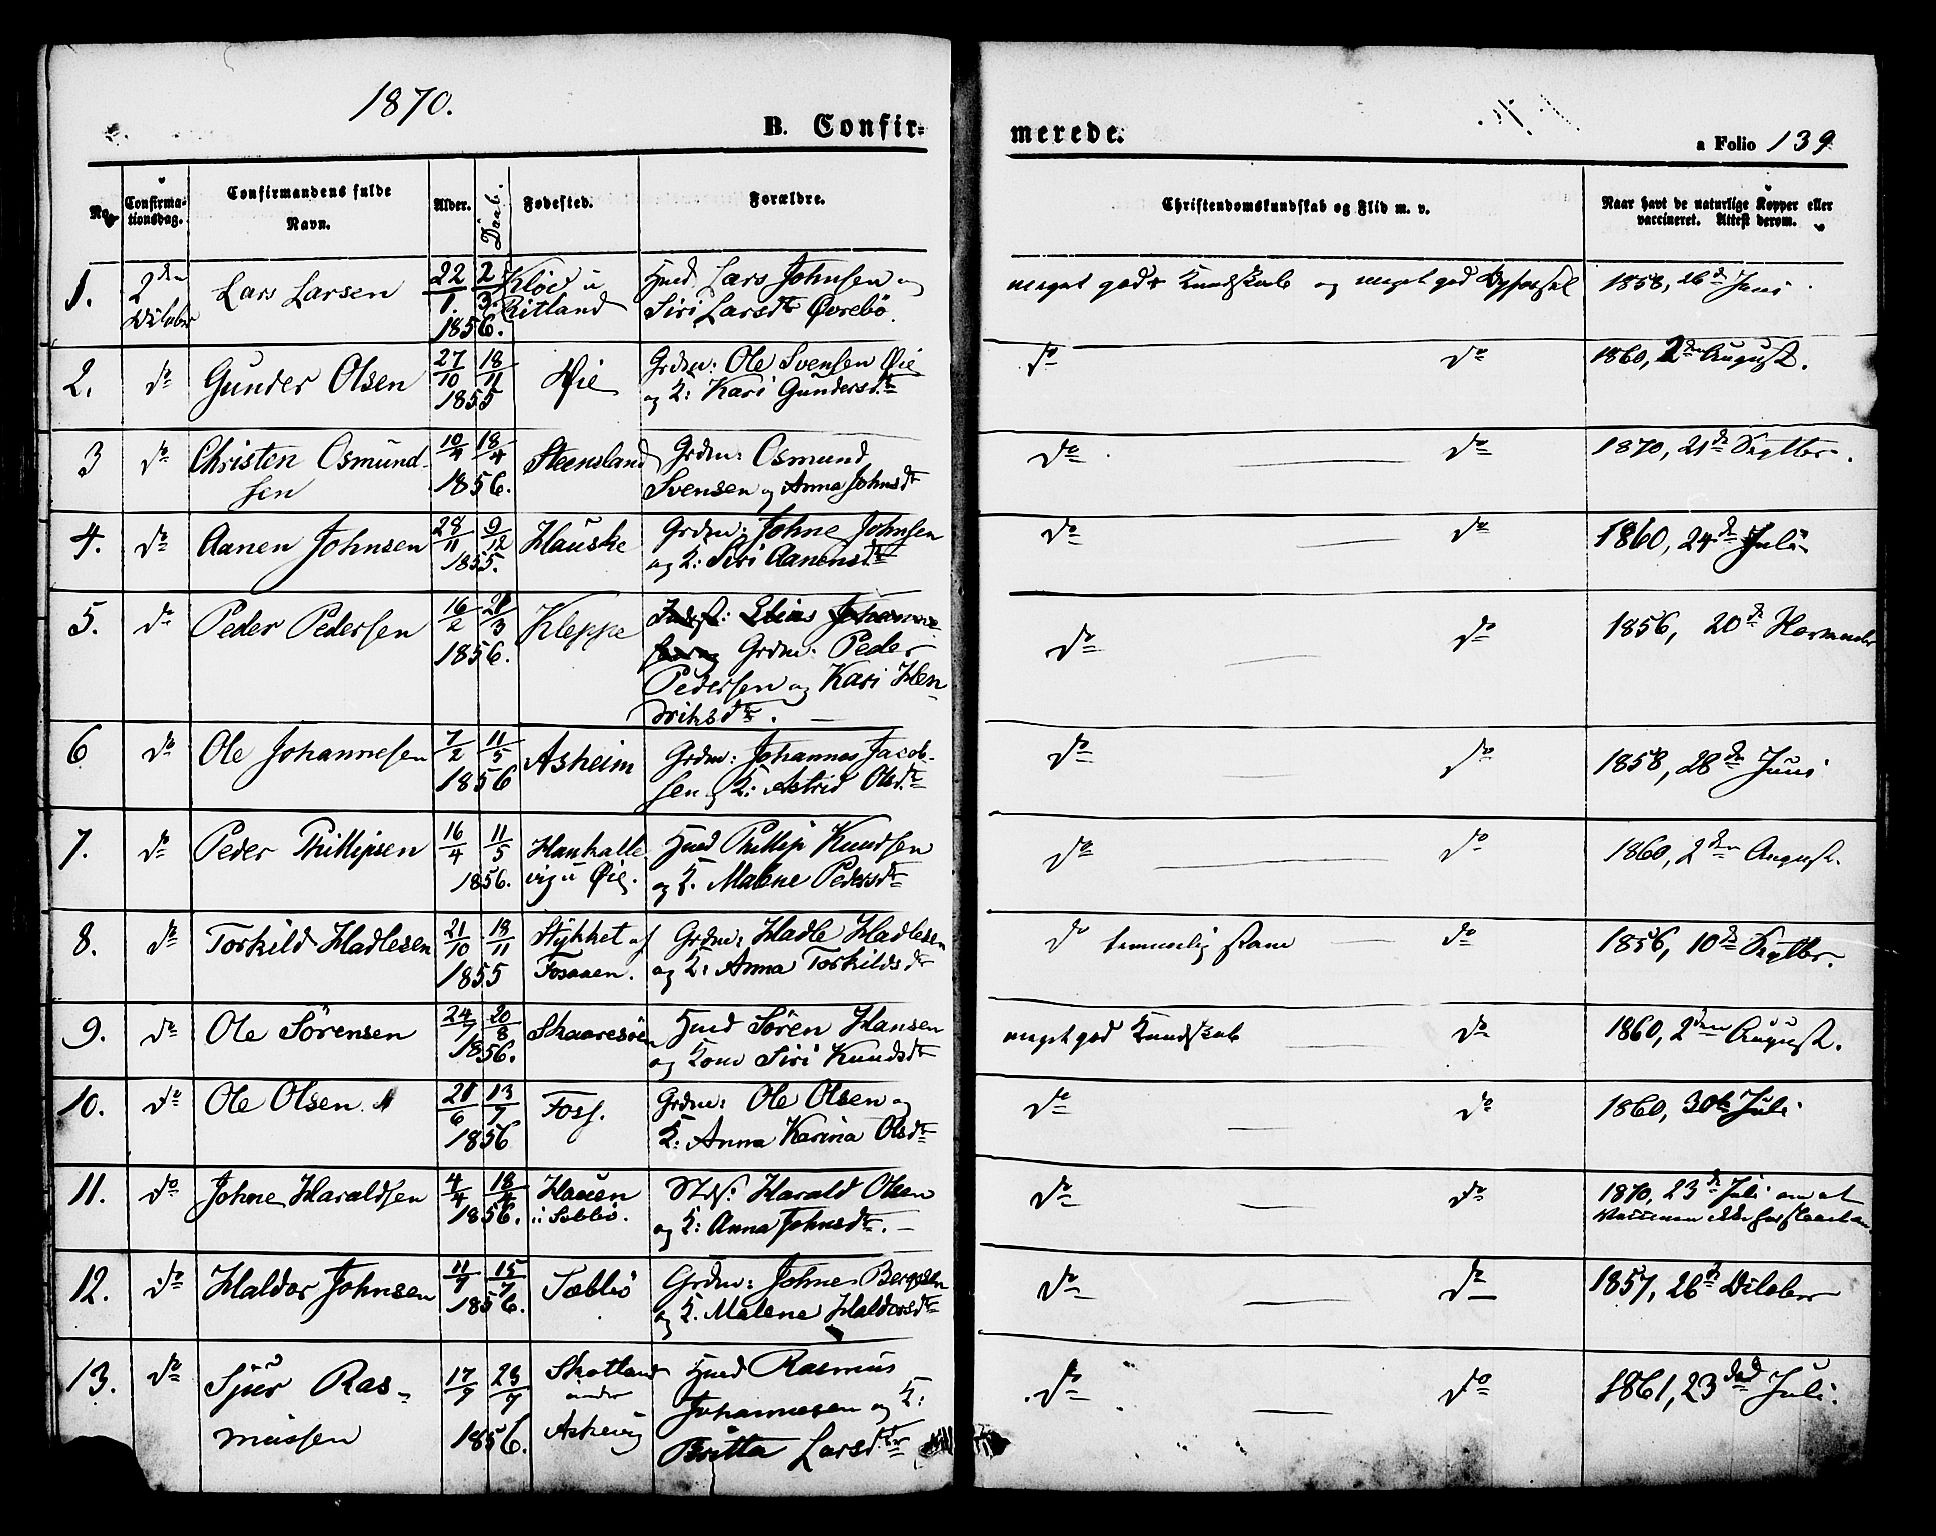 1870.
B. Confir-
merede.
a Folio 139
No. Confirma-tionsdag. Confirmandens fulde Navn. Alder. Daab. Fødested. Forældre. Christendomskundskab og Flid m. v. Naar havt de naturlige Kopper eller vaccineret. Attest derom.
1. 2den Lars Larsen 22/1 2/3 1856. Ritland Hmd Lars Johnsen og
Siri Larsdtr Øvrebö. meget god Kundskab og meget god Opførsel 1858, 26de Juni
2. do Gunder Olsen 27/10 18/11 1855 Øie Grdm: Ole Svensen Øie
og K: Kari Gundersdtr do do 1860, 2den August.
3 do Christen Osmund-
sen 10/4 18/4 1856. Steensland Grdm: Osmund
Svensen og Anna Johnsdtr do do 1870, 21de Septbr.
4. do Aanen Johnsen 28/11 9/12 1855. Hauske Grdm: Johne Johnsen
og K: Siri Aanensdtr do do 1860, 24de Juli
5. do Peder Pedersen 16/2 21/3 1856. Kleppe Elias
Grdm. Peder
Pedersen og Kari Hen-
driksdtr. do do 1856, 20de November
6 do Ole Johannesen 7/2 11/5 1856 Asheim Grdm: Johannes Jacob-
sen og K: Astrid Olsdtr do do 1858, 28de Juni
7. do Peder Phillipsen 16/4 11/5 1856. Haukalle
vig u Øie. Hmd Phillip Knudsen
og K. Malene Pedersdtr do do 1860, 2den August.
8. do Torkild Hadlesen 21/10 18/11 1855 Stykket af
Fosaaen. Grdm: Hadle Hadlesen
og K: Anna Torkildsdtr do temmelig do 1856, 10de Septbr.
9. do Ole Sörensen 24/7 20/8 1856. Skaaresöen Hmd Sören Hansen
og Kone Siri Knudsdtr meget god Kundskab do 1860, 2den August.
10. do Ole Olsen 21/6 13/7 1856 Foss. Grdm: Ole Olsen og
K: Anna Karina Olsdtr do do 1860, 30te Juli
11. do Johne Haraldsen 4/4 18/4 1856. Hauen
i Sæbbö. Harald Olsen
og K: Anna Johnsdtr. do do 1870, 23de Juli om at
Vaccinen ikke
12. do Haldor Johnsen 11/7 15/7 1856. Sæbbö Grdm: Johne Bergesen
og K. Malene Haldorsdtr do do 1857, 26de Oktober
13. do Sjur Ras-
mussen 17/7 23/7 1856. Skotland
under
Ashevig Hmd Rasmus
Johannesen og K:
Britta Larsdtr do do 1861, 23de Juli.